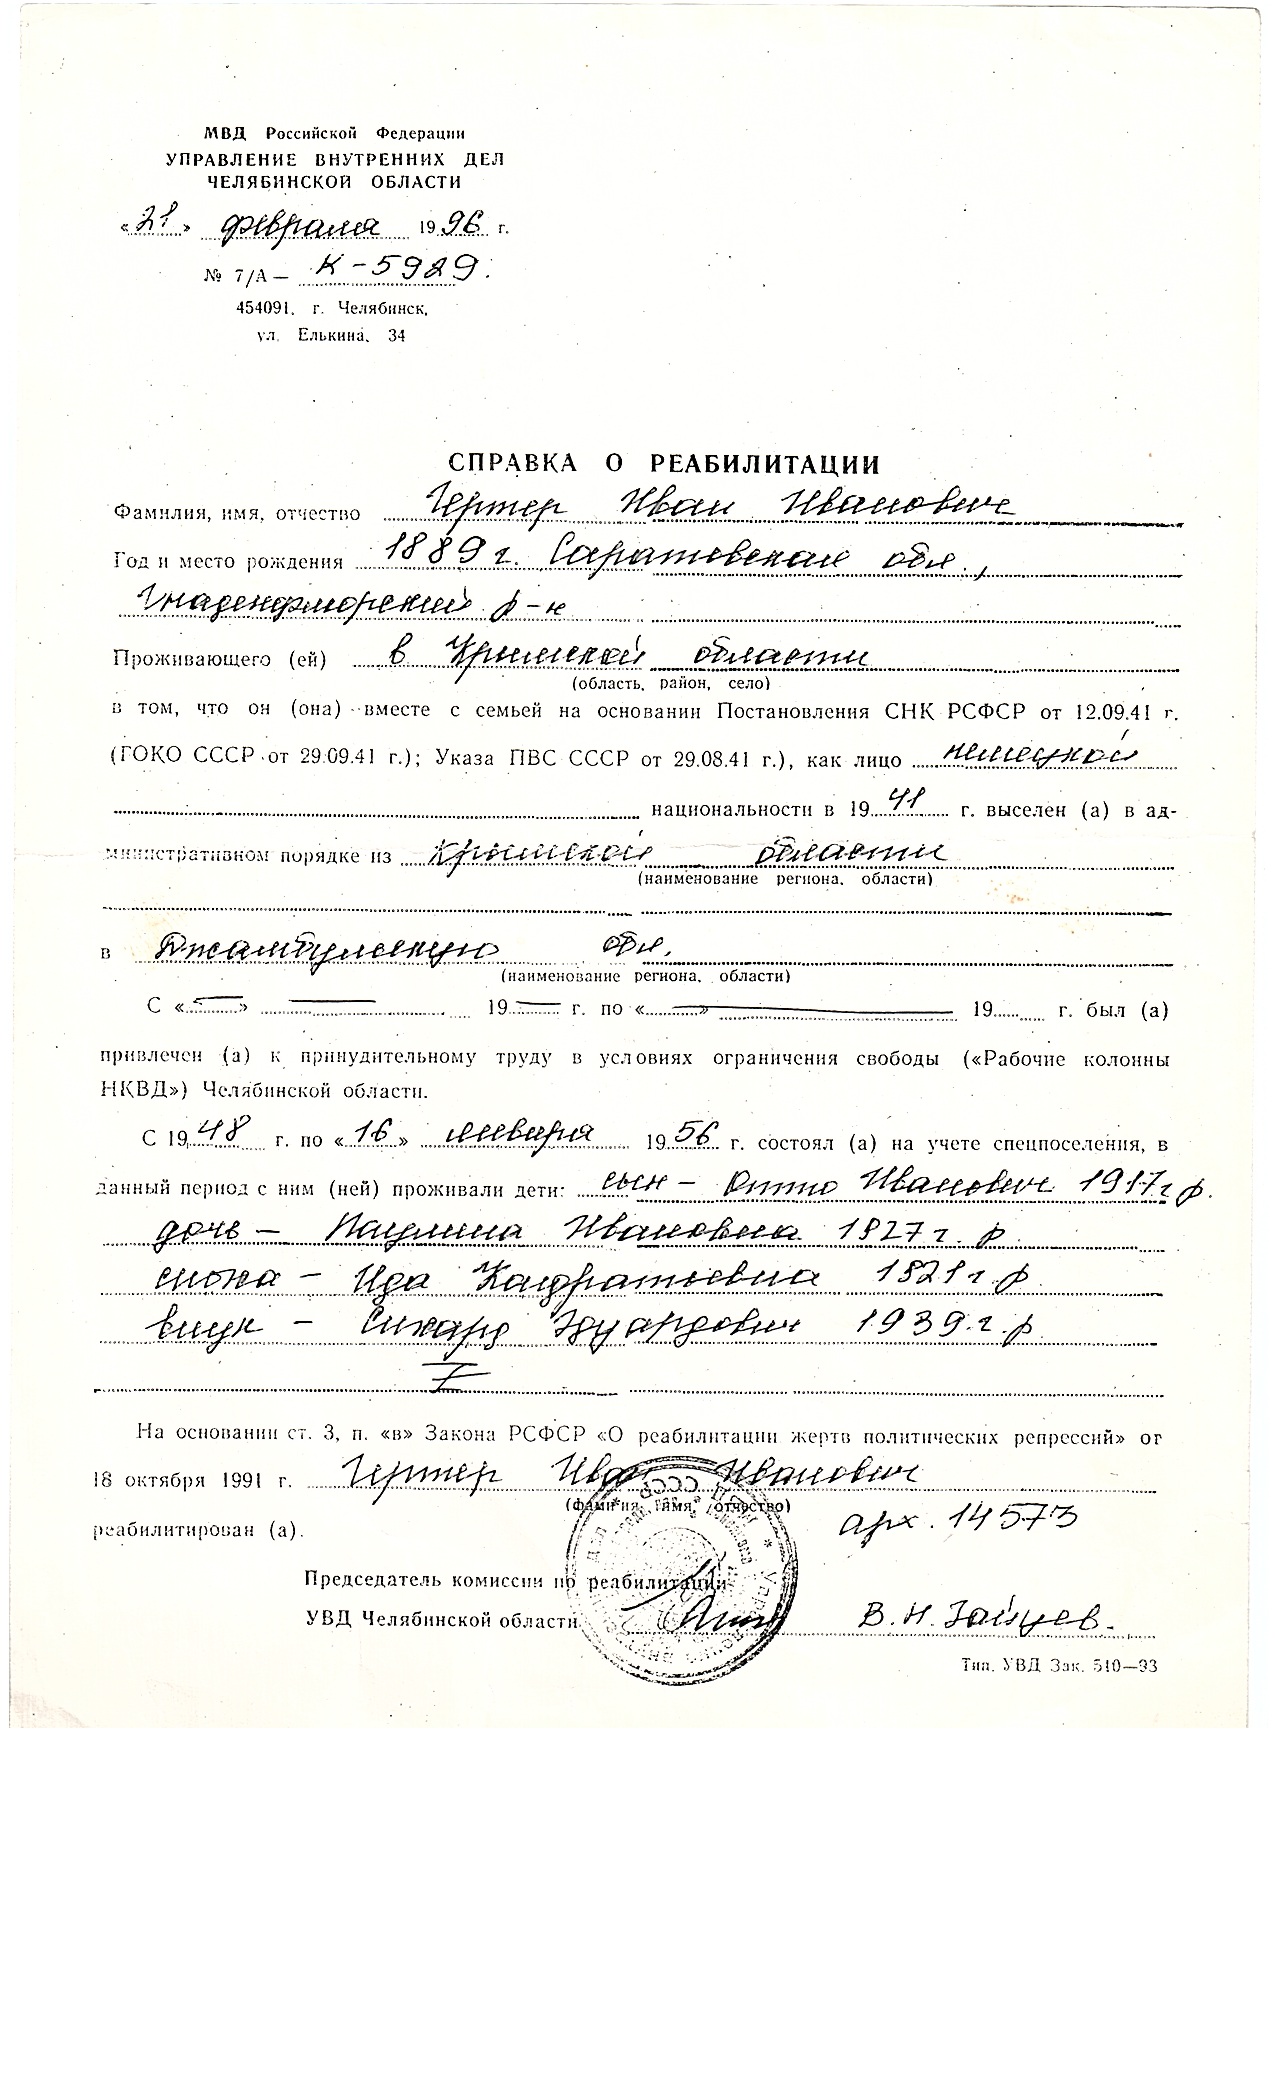 МВД Российской Федерации
УПРАВЛЕНИЕ ВНУТРЕННИХ ДЕЛ
ЧЕЛЯБИНСКОЙ ОБЛАСТИ
«21» февраля 1996 г.
№ 7/А — К-5929.
454091, г. Челябинск,
ул. Елькина, 34
СПРАВКА О РЕАБИЛИТАЦИИ
Фамилия, имя, отчество Гертер Иван Иванович
Год и место рождения 1889 г. Саратовская обл.,
Гнаденфлюрский р-н
Проживающего (ей) в Крымской области
(область, район, село)
в том, что он (она) вместе с семьей на основании Постановления СНК РСФСР от 12.09.41 г.
(ГОКО СССР от 29.09.41 г.); Указа ПВС СССР от 29.08.41 г.), как лицо немецкой
национальности в 1941 г. выселен (а) в ад-
министративном порядке из Крымской области
(наименование региона, области)
в Джамбулскую обл.
(наименование региона, области)
С «—» — 19— г. по «—» 19 г. был (а)
привлечен (а) к принудительному труду в условиях ограничения свободы («Рабочие колонны
НКВД») Челябинской области.
С 1948 г. по «16» января 1956 г. состоял (а) на учете спецпоселения, в
данный период с ним (ней) проживали дети: сын - Отто Иванович 1917 г р.
дочь - Паулина Ивановна 1927 г. р
сноха - Ида 1921 г. р
внук - Эдуардович 1939 г. р
Z
На основании ст. 3, п. «в» Закона РСФСР «О реабилитации жертв политических репрессий» от
18 октября 1991 г. Гертер Иван Иванович
(фамилия, имя, отчество)
реабилитирован (а).
арх. 14573
Председатель комиссии по реабилитации
УВД Челябинской области В. Н. Зайцев.
Тип. УВД Зак. 510—93